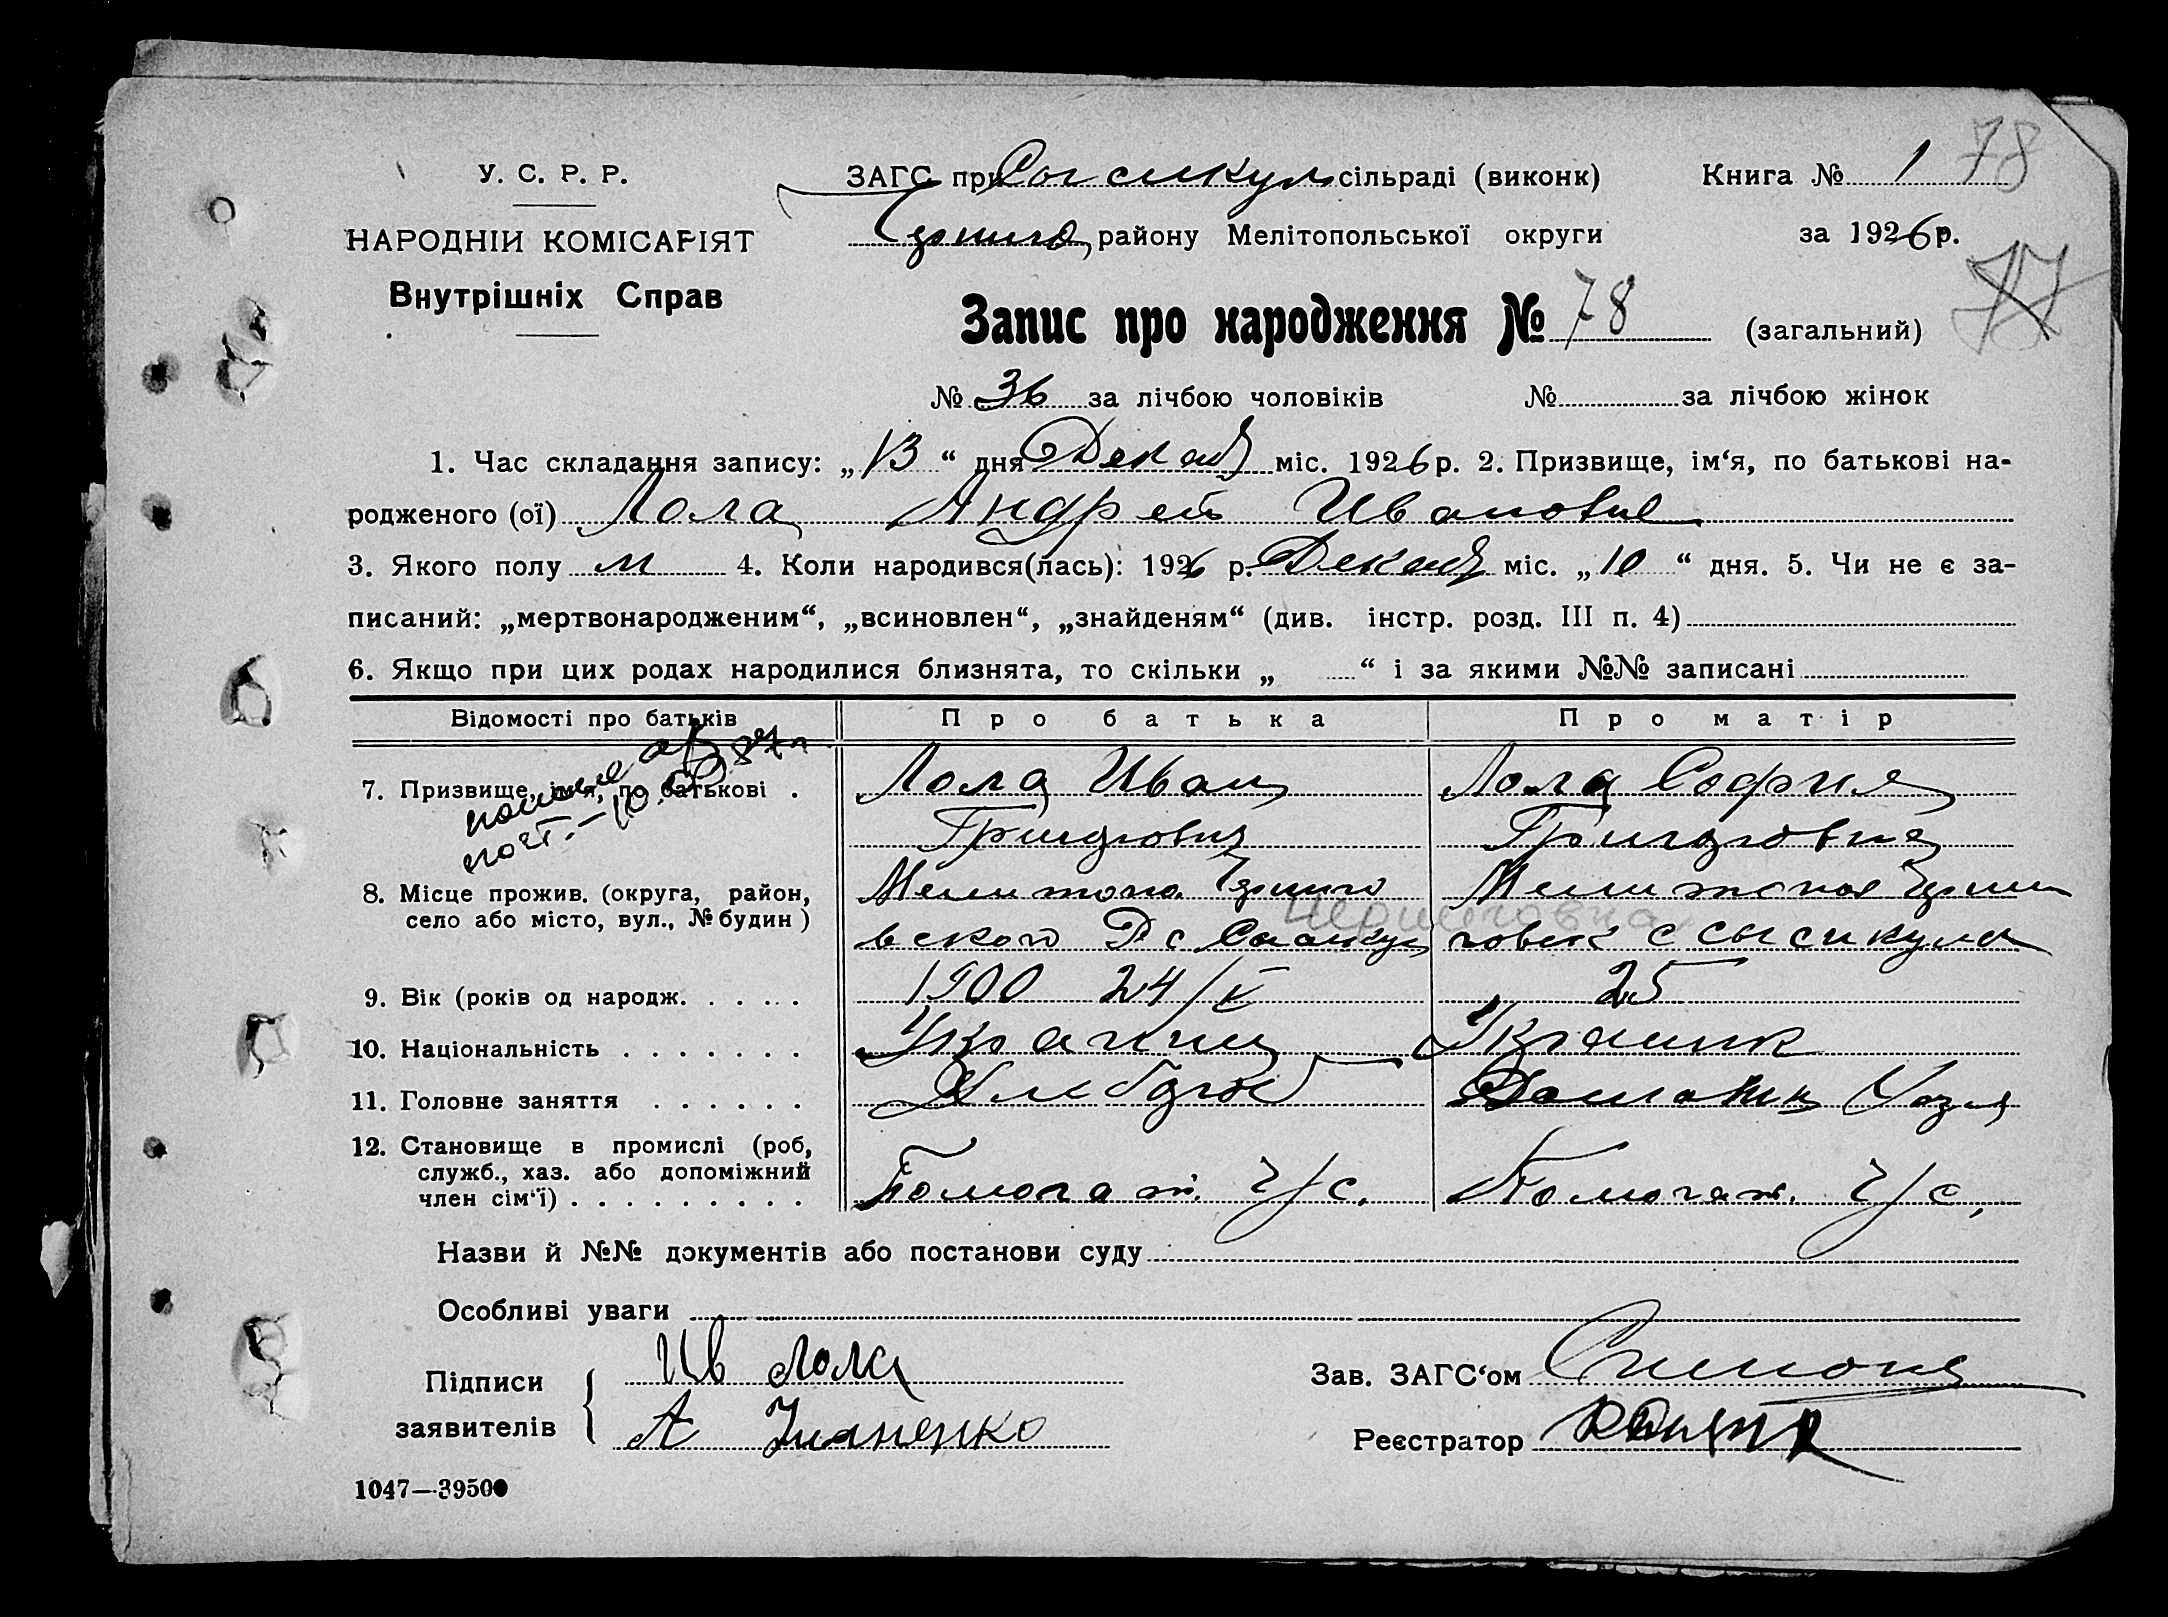 78
У. С. Р. Р.
ЗАГС при Сысикул сільраді (виконк) Книга № 1
НАРОДНІЙ КОМІСАРІЯТ
району Мелітопольської округи за 1926 р.
Внутрішніх Справ
77
Запис про народження № 78 (загальний)
№ 36 за лічбою чоловіків № за лічбою жінок
1. Час складання запису: „13“ дня Декаб міс. 1926 р. 2. Призвище, ім‘я, по батькові на-
родженого (ої) Лола Андрей Иванович
3. Якого полу м 4. Коли народився(лась): 1926 р. Декаб міс. „10“ дня. 5. Чи не є за-
писаний: „мертвонародженим“, „всиновлен“, „знайденям“ (див. інстр. розд. III п. 4)
6. Якщо при цих родах народилися близнята, то скільки „ “ і за якими №№ записані
Відомості про батьків Про батька Про матір
7. Призвище, ім‘я, по батькові . Лола Иван Лола София
Григорович Григоровна
8. Місце прожив. (округа, район, Мелитопо. Черниго Мелитопол Черни
Черниговка
село або місто, вул., № будин) вского Р с Сысикул говск с Сысикула
9. Вік (років од народж. . . . . 1900 24/V 25
10. Національність . . . . . . . Украинец Украинк
11. Головне заняття . . . . . . Хлебороб Домашн
12. Становище в промислі (роб,
служб., хаз. або допоміжний
член сім‘ї) . . . . . . . . . Помогат. ч/с. Помогат. ч/с,
Назви й №№ документів або постанови суду
Особливі уваги
Підписи Ив Лола Зав. ЗАГС‘ом
заявителів А Реєстратор
1047—39500